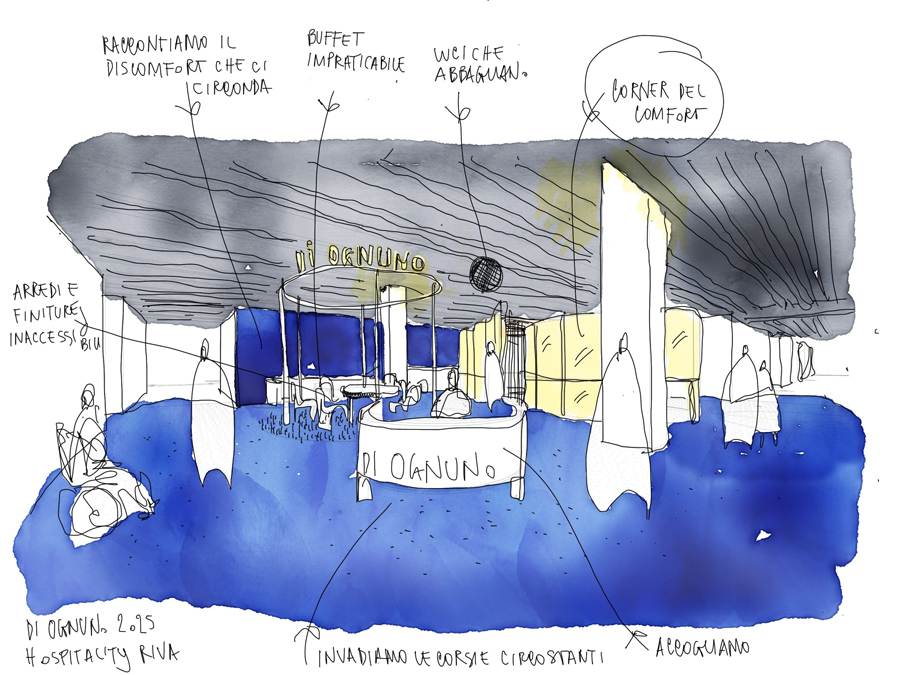 RACCONTIAMO IL
DISCOMFORT CHE CI
CIRCONDA
BUFFET
IMPRATICABILE
LUCI CHE
ABBAGLIANO
CORNER DEL
COMFORT
DI OGNUNO
ARREDI E
FINITURE
INACCESSI
BILI
DI OGNUNO
DI OGNUNO 2025
HOSPITALITY RIVA
INVADIAMO LE CORSIE CIRCOSTANTI
ACCOGLIAMO